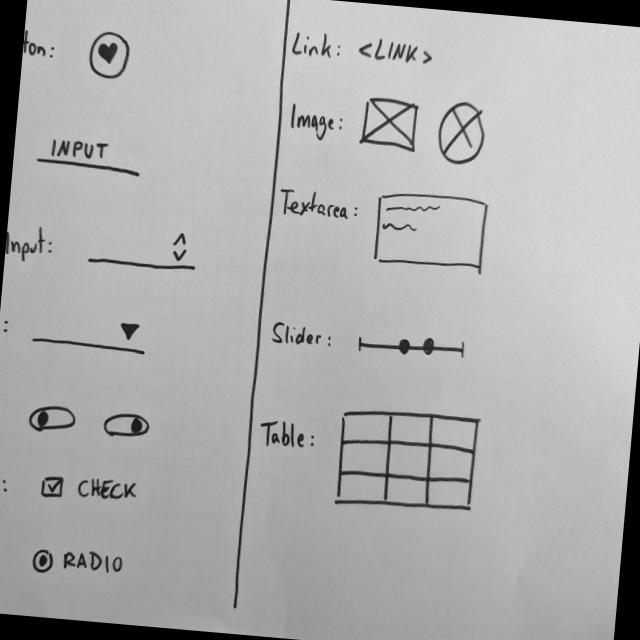 ton:
INPUT
Input:
:
:
CHECK
RADIO
Link: <LINK>
Image:
Textarea:
Slider:
Table: